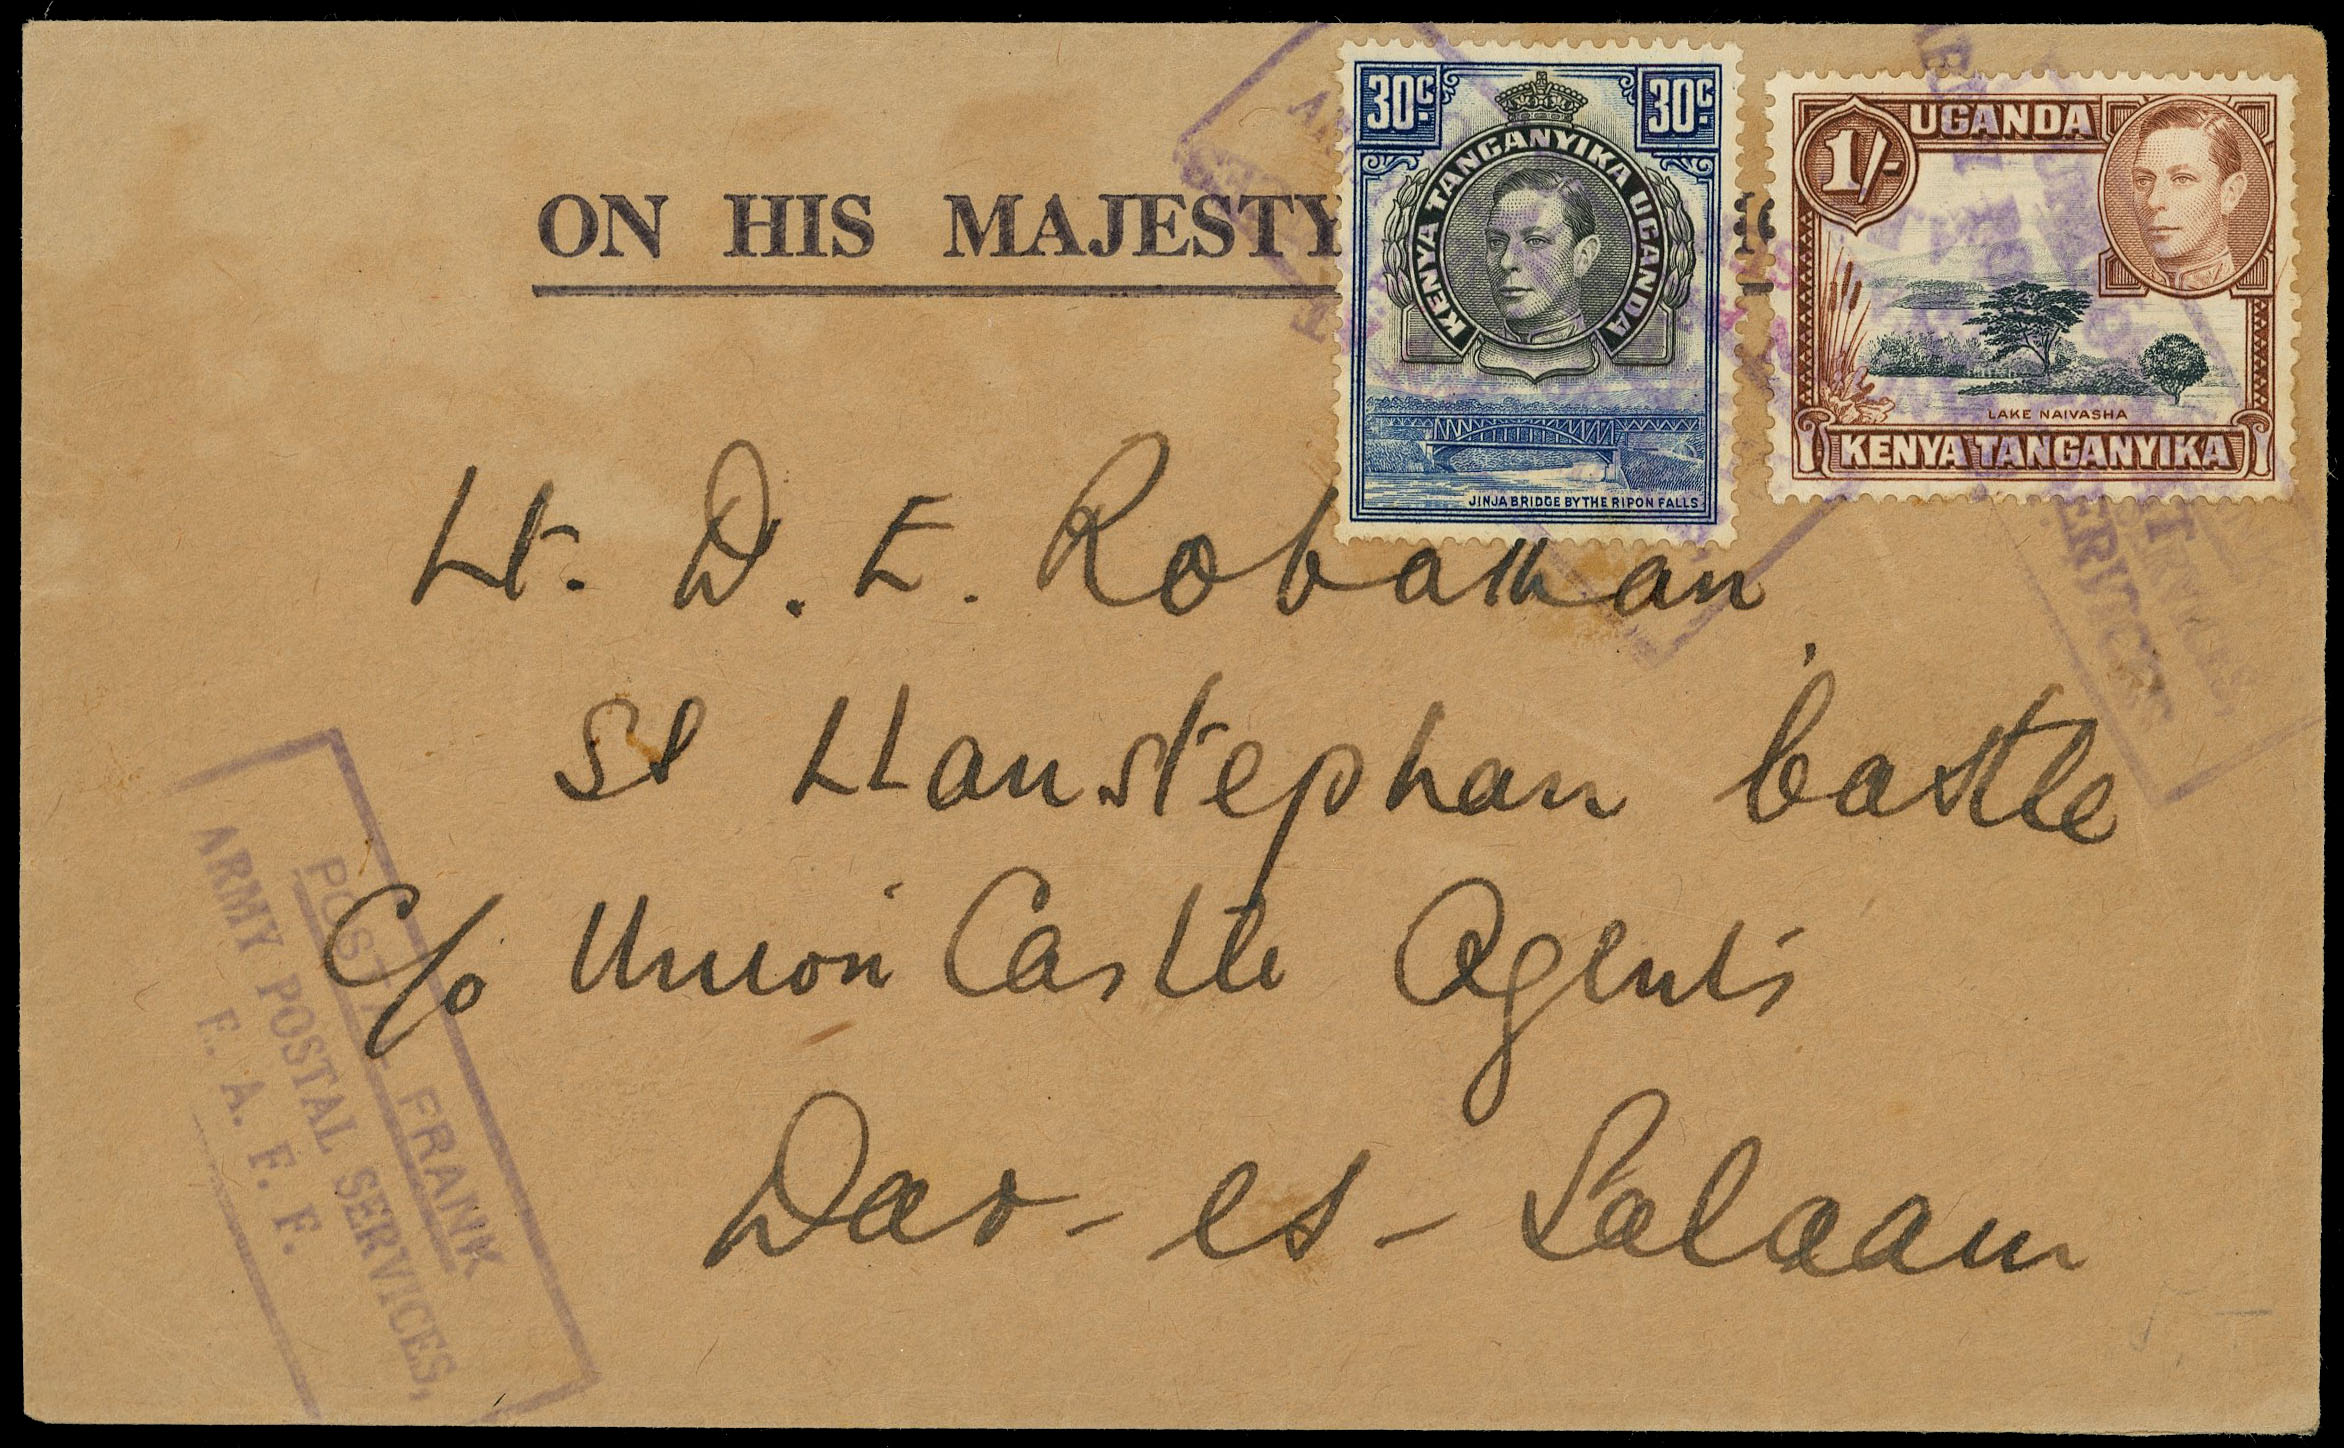 30C 30C
KENYA TANGANYIKA UGANDA
JINJA BRIDGE BY THE RIPON FALLS
1/- UGANDA
LAKE NAIVASHA
KENYA TANGANYIKA
ON HIS MAJESTY
Lt. D. E. Robathan
SS Llanstephan Castle
C/o Union Castle Agents
Dar-es-Salaam
POSTAL FRANK
ARMY POSTAL SERVICES,
E. A. F. F.
SERVICES